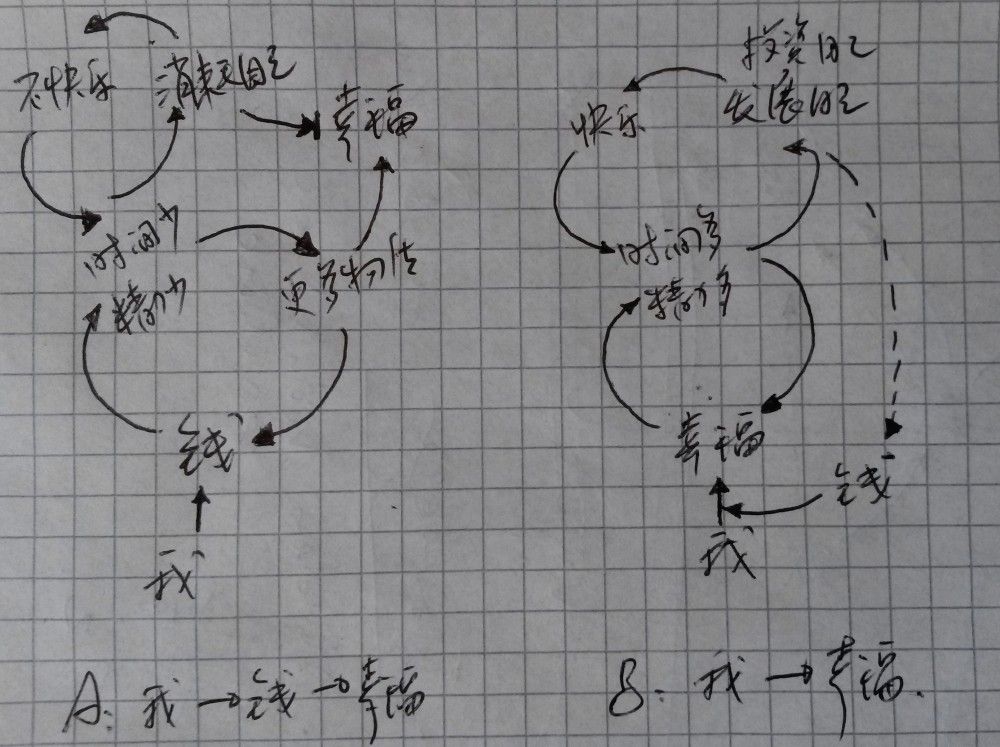 不快乐
消耗自己
幸福
时间少
精力少
更多物质
钱
我
A: 我→钱→幸福
投资自己
发展自己
快乐
时间多
精力多
幸福
钱
我
B: 我→幸福.